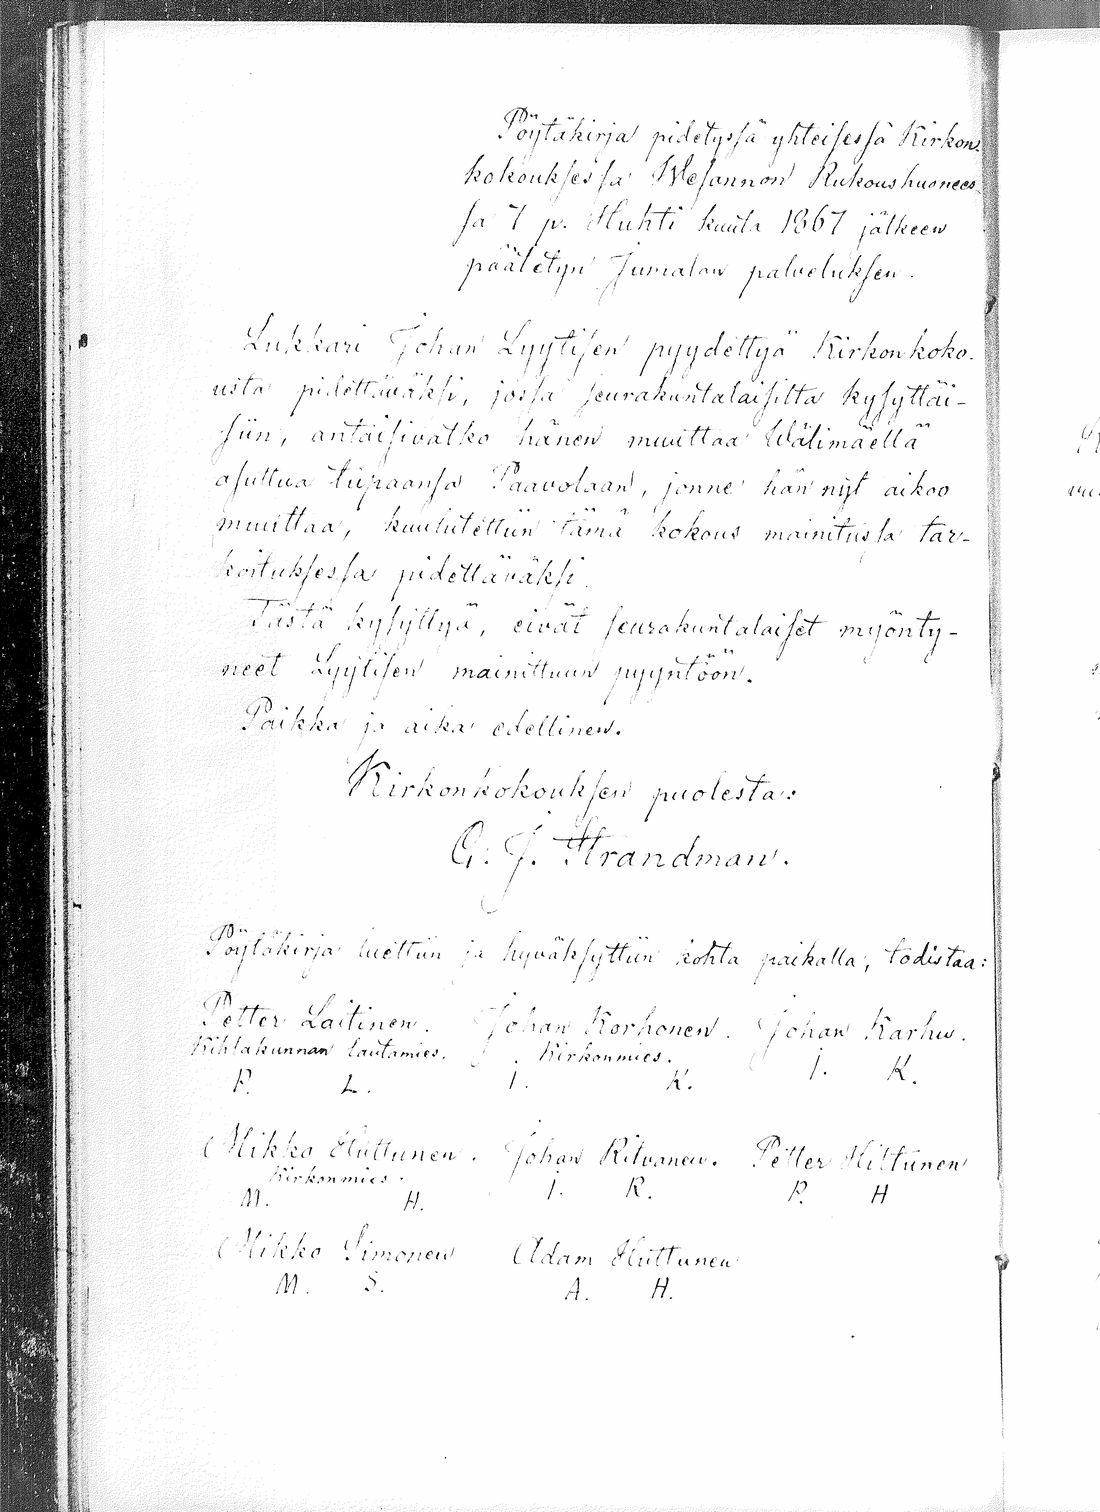 Pöytäkirja pidetyssä yhteisessä Kirkon-
kokouksessa Wesannon Rukoushuonees-
sa 7 p. Huhti kuuta 1867 jälkeen
päätetyn Jumalan palveluksen.
Lukkari Johan Lyytisen pyydettyä Kirkonkoko-
usta pidettäväksi, jossa seurakuntalaisilta kysyttäi-
siin, antaisivatko hänen muuttaa Wälimäellä
asuttua tupaansa Paavolaan, jonne hän nyt aikoo
muuttaa, kuulutettiin tämä kokous mainitussa tar-
koituksessa pidettäväksi.
Tästä kysyttyä, eivät seurakuntalaiset myönty-
neet Lyytisen mainittuun pyyntöön.
Paikka ja aika edellinen.
Kirkonkokouksen puolesta:
G. J. Strandman.
Pöytäkirja luettiin ja hyväksyttiin kohta paikalla, todistaa:
Petter Laitinen. Johan Korhonen. Johan Karhu.
Kihlakunnan lautamies. Kirkonmies.
P. L. I. K. I. K.
Mikko Huttunen. Johan Ritvanen. Petter Hittunen
Kirkonmies.
M. H. I. R. P. H
Mikko Simonen Adam Huttunen
M. S. A. H.